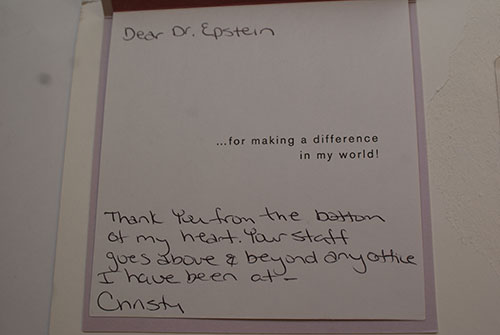 Dear Dr. Epstein
...for making a difference
in my world!
Thank You from the bottom
of my heart. Your staff
goes above & beyond any office
I have been at -
Christy